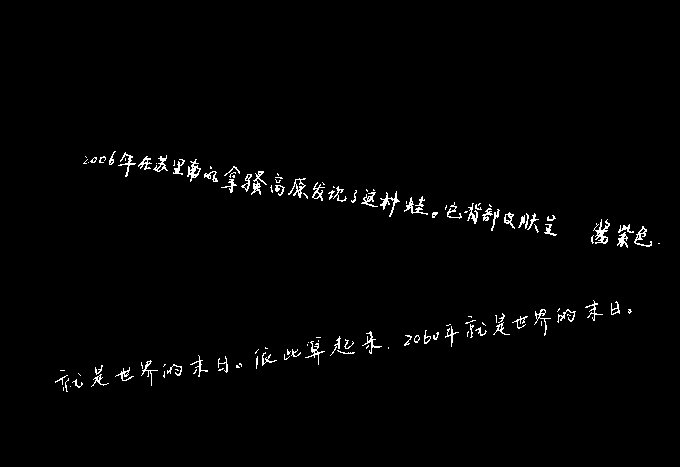 2006年在苏里南的拿骚高原发现了这种蛙。它背部皮肤呈 酱紫色.
就是世界的末日。依此算起来,2060年就是世界的末日。